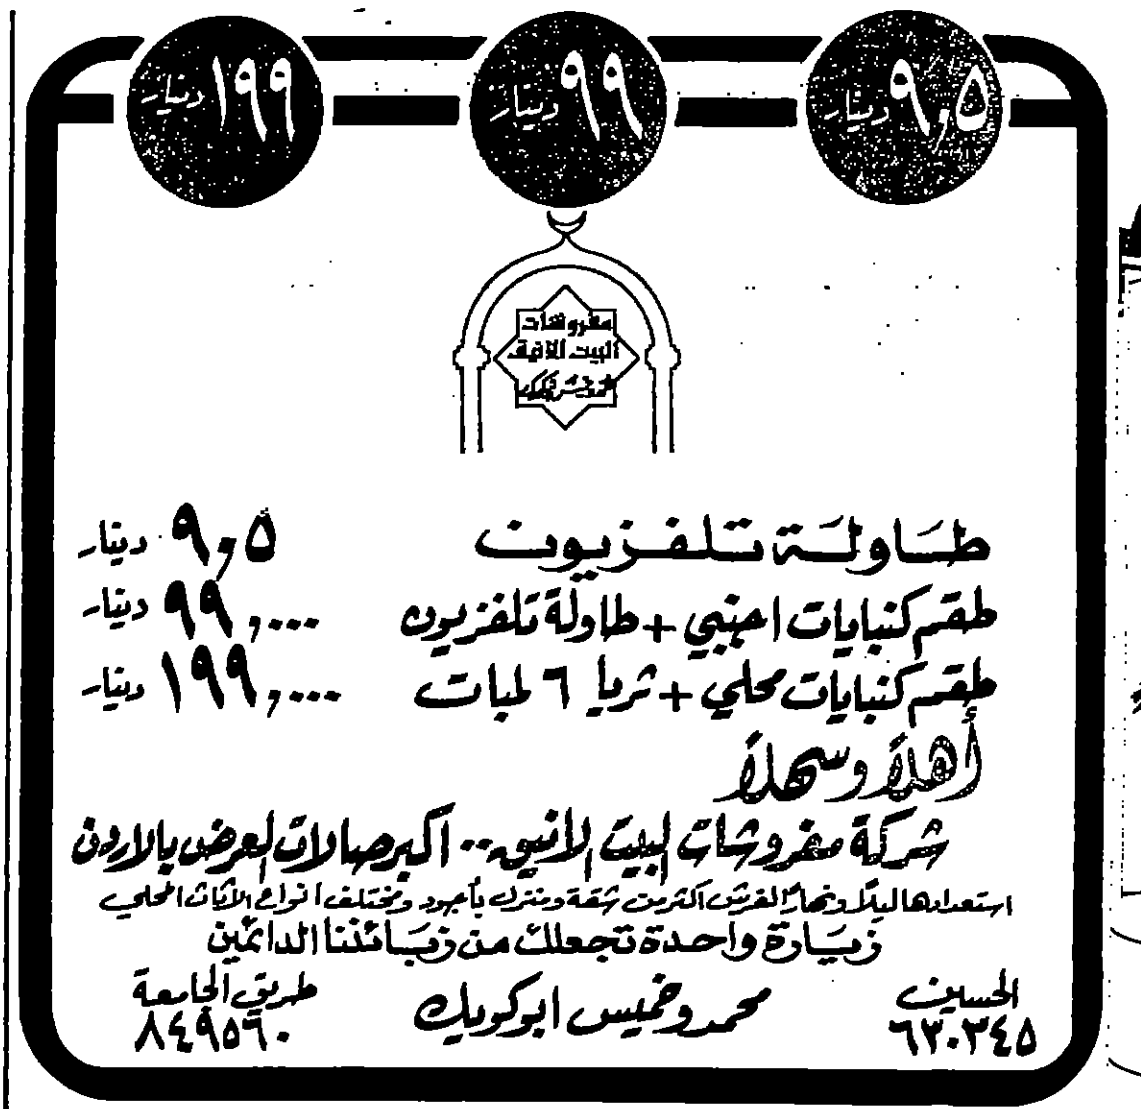 ٩,٥ دينار
٩٩ دينار
١٩٩ دينار
مفروشات
البيت الانيق
طاولة تلفزيون ٩,٥ دينار
طقم كنبايات اجنبي + طاولة تلفزيون ٩٩,٠٠٠ دينار
طقم كنبايات محلي + ثريا ٦ لمبات ١٩٩,٠٠٠ دينار
أهلاً وسهلاً
شركة مفروشات البيت الأنيق.. اكبر صالات العرض بالاردن
استعدادها ليلاً ونهاراً لفرش اكثر من شقة ومنزل بأجود ومختلف انواع الأثاث المحلي
زيارة واحدة تجعلك من زبائننا الدائمين
الحسين
٦٣٠٣٤٥
محمد وخميس ابوكويك
طريق الجامعة
٨٤٩٥٦٠